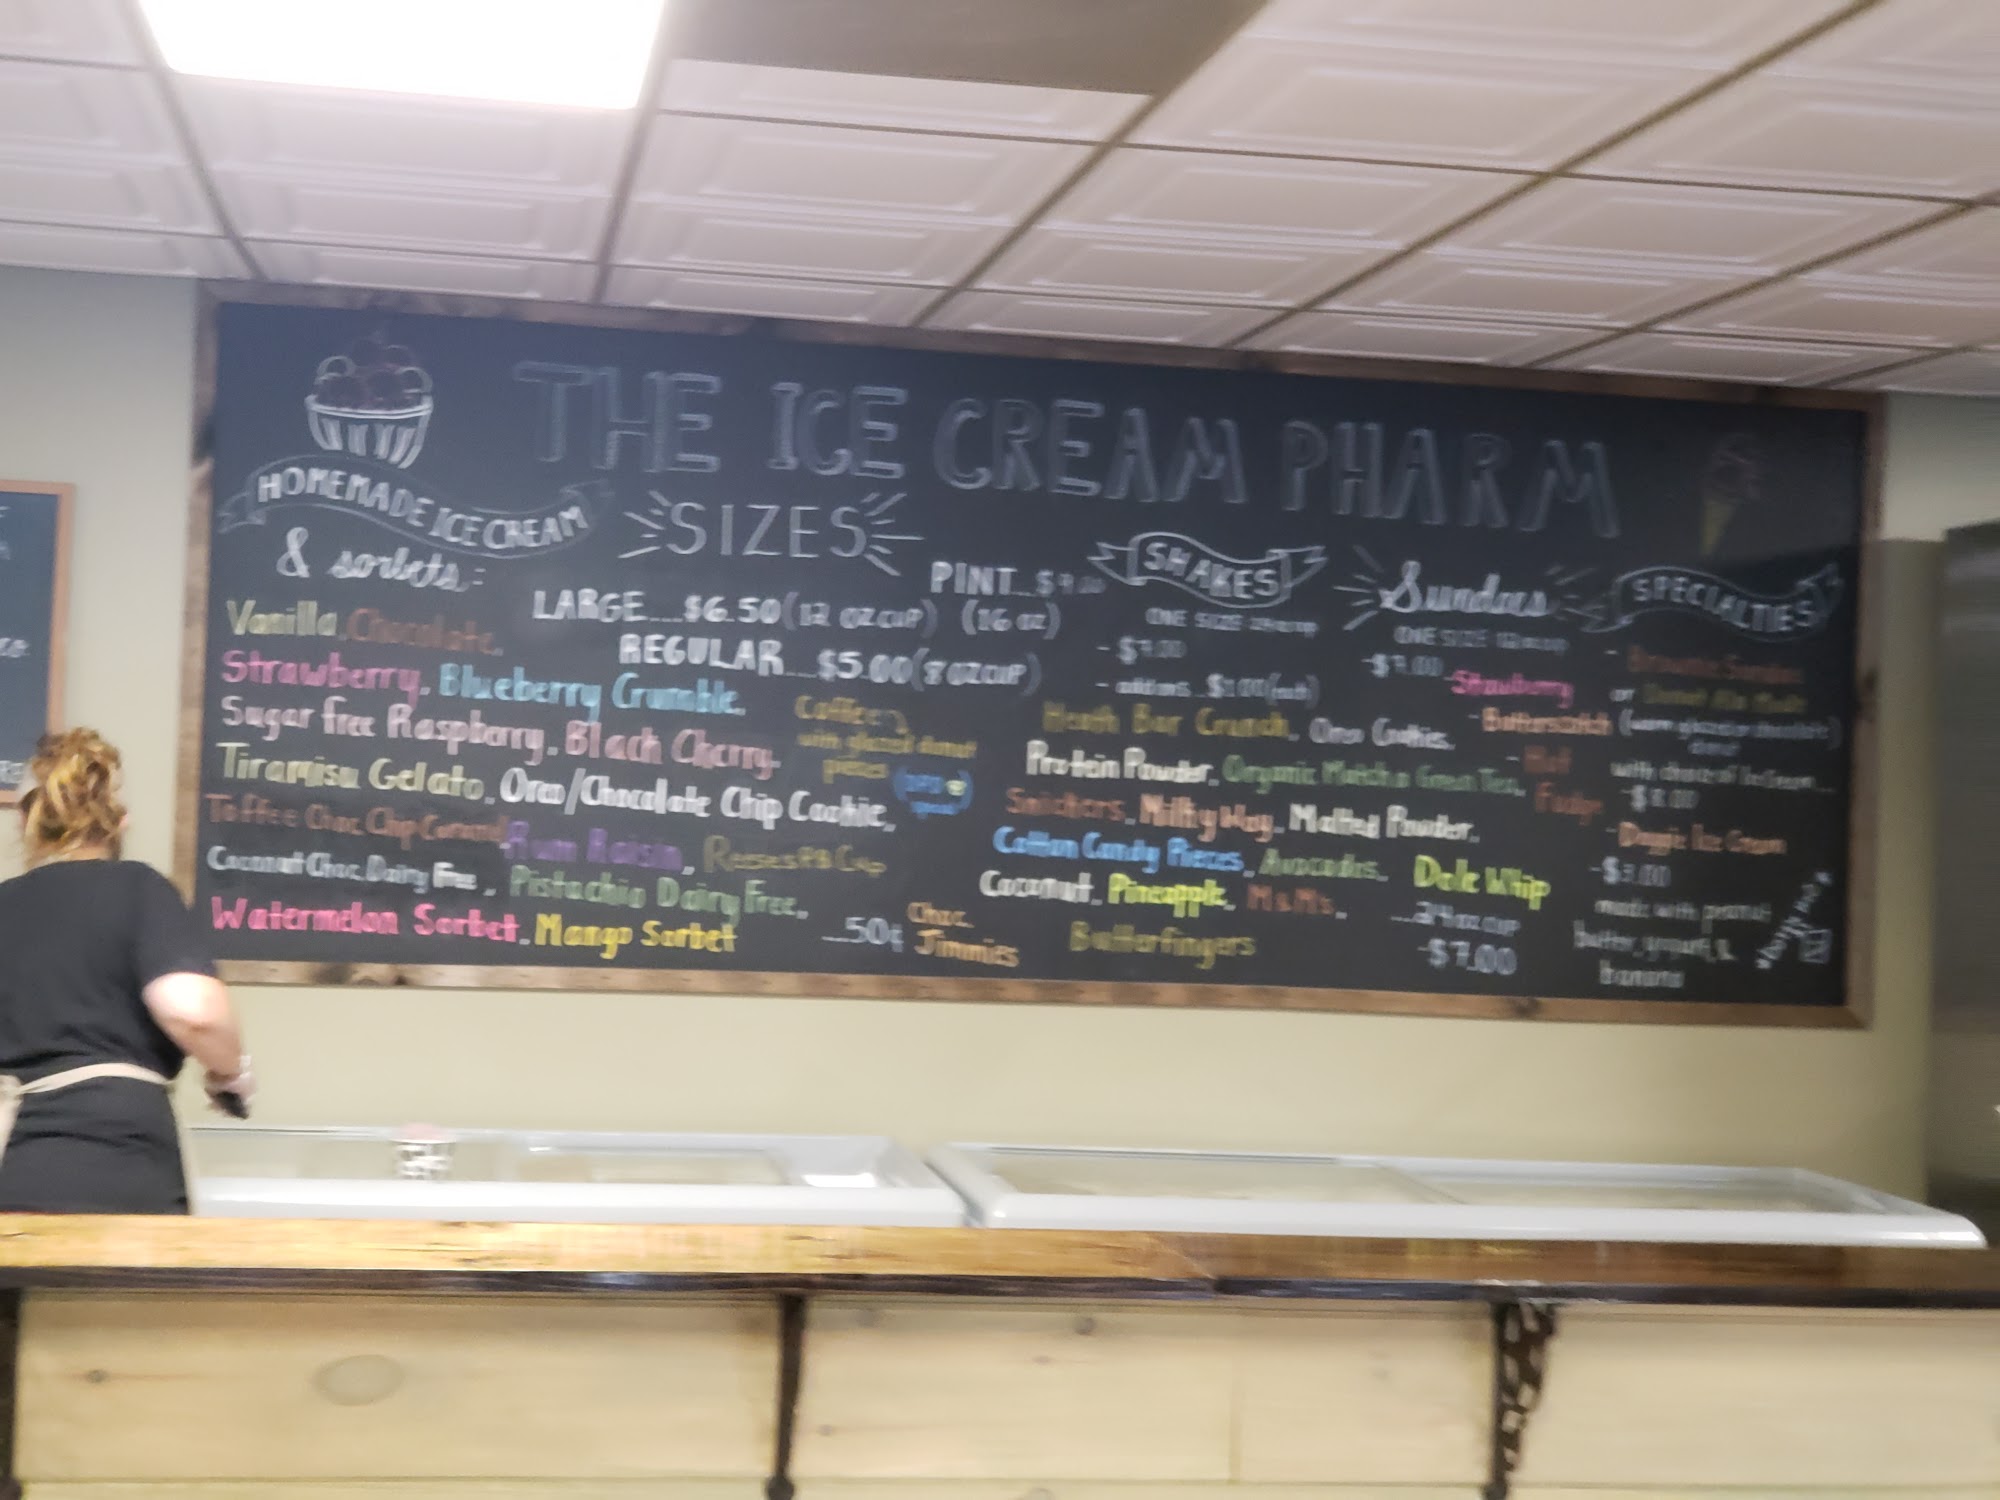 THE ICE CREAM PHARM
HOMEMADE ICE CREAM
& sorbets:
Vanilla, Chocolate,
Strawberry, Blueberry Crumble,
Sugar free Raspberry, Black Cherry,
Tiramisu Gelato, Oreo/Chocolate Chip Cookie,
Toffee Choc Chip Caramel, Rum Raisin, Reeses PB Cup
Coconut Choc. Dairy Free, Pistachio Dairy Free,
Watermelon Sorbet, Mango Sorbet
Coffee
with glazed donut
pieces
SIZES
PINT...$9.00
(16 oz)
LARGE....$6.50 (12 OZ CUP)
REGULAR....$5.00 (8 OZ CUP)
...50¢ Choc.
Jimmies
SHAKES
ONE SIZE 24oz cup
- $9.00
- add ins...$1.00 (each)
Heath Bar Crunch, Oreo Cookies,
Protein Powder, Organic Matcha Green Tea,
Snickers, Milky Way, Malted Powder,
Cotton Candy Pieces, Avocados,
Coconut, Pineapple, M&Ms,
Butterfingers
Sundaes
ONE SIZE 12oz cup
-$9.00
Strawberry
- Butterscotch
- Hot
Fudge
Dole Whip
...24 oz cup
-$7.00
SPECIALTIES
- Brownie Sundae
or Donut Ala Mode
(warm glazed or chocolate
donut
with choice of Ice Cream...
-$8.00
- Doggie Ice Cream
-$3.00
made with peanut
butter, yogurt, &
banana